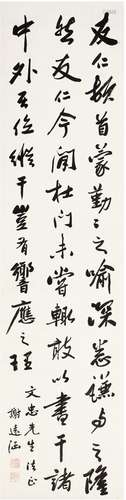 友仁頓首蒙勤勤之喻深悉謙与之隆
然友仁今閒杜門未嘗輒敢以書干諸
中外在位縱干豈有響應之理
文忠先生法正
謝遠涵